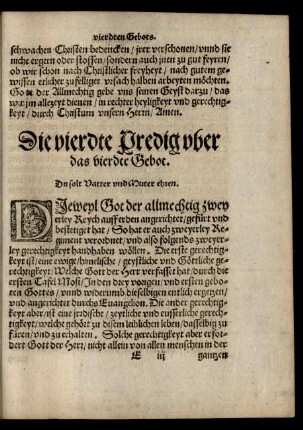 vierdten Gebots.
schwachen Christen bedencken / jrer verschonen / vnnd sie
nicht ergern oder stossen / sondern auch jnen zu gut feyren /
ob wir schon nach Christlicher freyheyt / nach gutem ge-
wissen etlicher zufelliger vrsach halben arbeyten möchten.
Got der Allmechtig gebe vns seinen Geyst darzu / das
wir jm allezeyt dienen / in rechter heyligkeyt vnd gerechtig-
keyt / durch Christum vnsern Herrn / Amen.
Die vierdte Predig vber
das vierdte Gebot.
Du solt Vatter vnd Muter ehren.
DJeweyl Got der allmechtig zwey
erley Reych auff erden angerichtet / gefürt vnd
bestetiget hat / So hat er auch zweyerley Re-
giment verordnet / vnd also volgends zweyer-
ley gerechtigkeyt handhaben wöllen. Die erste gerechtig-
keyt ist / eine ewige / himelische / geystliche vnd Göttliche ge-
rechtigkeyt / Welche Gott der Herr verfasset hat / durch die
ersten Tafel Mosi / Jn den drey vorigen / vnd ersten gebo-
ten Gottes / vnnd widerumb dieselbigen entlich ergentzet /
vnd angerichtet durchs Euangelion. Die ander gerechtig-
keyt aber / ist eine jrdische / zeytliche vnd eusserliche gerech-
tigkeyt / welche gehört zu disem leiblichen leben / dasselbig zu
füren / vnd zu erhalten. Solche gerechtigkeyt aber erfor-
dert Gott der Herr / nicht allein von allen menschen in der
E iij gantzen